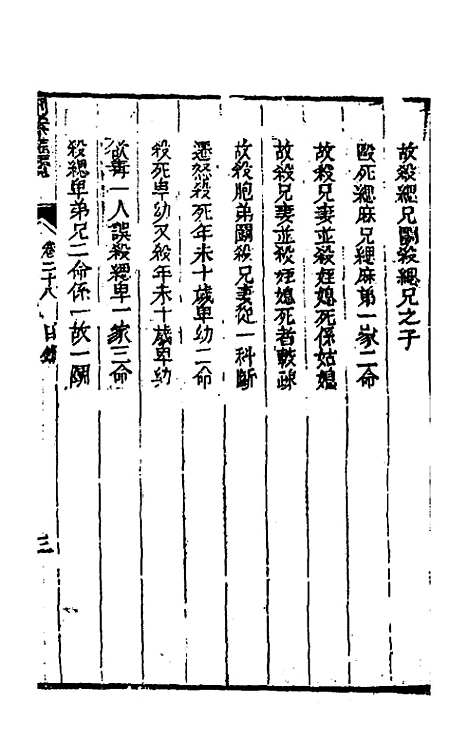 故殺緦兄鬬殺緦兄之子
毆死緦麻兄緦麻弟一家二命
故殺兄妻並殺姪媳死係姑媳
故殺兄妻並殺姪媳死者較疎
故殺胞弟鬬殺兄妻從一科斷
遷怒殺死年未十歲卑幼二命
殺死卑幼又殺年未十歲卑幼
故毒一人誤殺緦卑一家三命
殺緦卑弟兄二命係一故一鬬
卷二十八 目錄
三